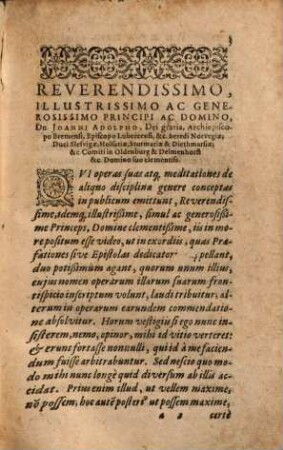 3
REVERENDISSIMO,
ILLUSTRISSIMO AC GENE-
ROSISSIMO PRINCIPI AC DOMINO,
Dn. JOANNI ADOLPHO, Dei gratia, Archiepisco-
po Bremensi, Episcopo Lubecensi, &c. heredi Norvegiæ,
Duci Slesvigæ, Holsatiæ, Sturmariæ & Diethmarsiæ;
&c. Comiti in Oldenburg & Delmenhorst
&c. Domino suo clementiss.
QVI operas suas atq, meditationes de
aliquo disciplinæ genere conceptas
in publicum emittunt, Reverendis-
sime, idemq, illustrissime, simul ac generosissi-
me Princeps, Domine clementissime, iis in mo-
re positum esse video, ut in exordiis, quas Præ-
fationes sive Epistolas dedicator pellant,
duo potissimum agant, quorum unum illius,
cujus nomen operum illarum suarum fron-
tispicio inscriptum volunt, laudi tribuitur: al-
terum in operarum earundem commendatio-
ne absolvitur. Horum vestigiis si ego nunc in-
sisterem, nemo, opinor, mihi id vitio verteret:
& erunt fortasse nonnulli, qui id à me facien-
dum fuisse arbitrabuntur. Sed nescio quo mo-
do mihi nunc longè quid diversum ab illis ac-
cidat. Prius enim illud, ut vellem maxime,
nõ possem, hoc autẽ posteri9 ut possem maxime,
a 2 certè